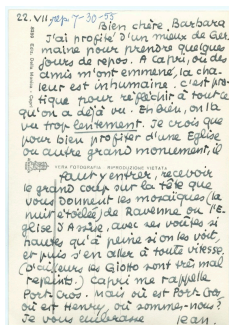 22.VII. rep 7-30-55
Bien chère, Barbara
J'ai profité d'un mieux de Ger
maine pour prendre quelques
jours de repos. A Capri, où des
amis m'ont emmené, la cha-
leur est inhumaine. C'est pra-
tique pour réfléchir à tout ce
qu'on a déjà vu. On la
va trop lentement. Je crois que
pour bien profiter d'une Eglise
ou autre grand monument, il
VERA FOTOGRAFIA - RIPRODUZIONE VIETATA
faut y entrer, recevoir
le grand coup sur la tête que
vous donnent les mosaïques (la
nuit étoilée) de Ravenne ou l'E-
glise d'Assise, avec ses voûtes si
hautes qu'à peine si on les voit,
et puis s'en aller à toute vitesse,
(d'ailleurs les Giotto sont très mal
repeints). Capri me rappelle
Port-Cros. Mais où est Port-Cros,
où est Henry, où sommes-nous?
Je vous embrasse Jean.